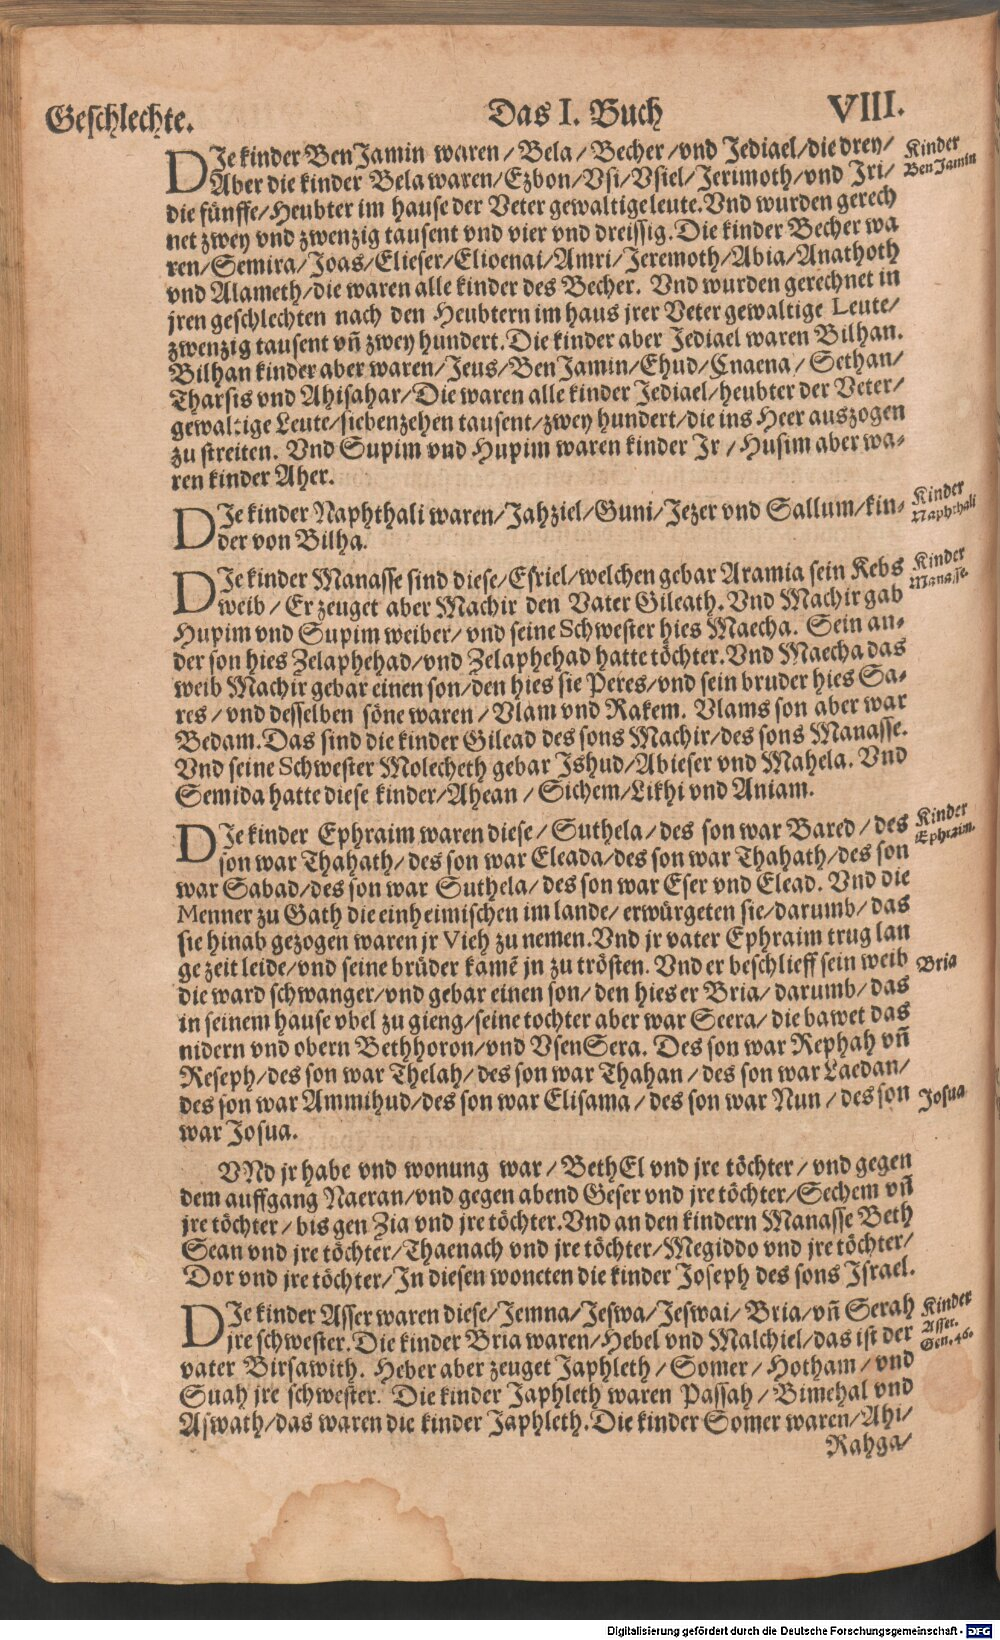 Geschlechte. Das I. Buch VIII.
DJe kinder BenJamin waren/ Bela/ Becher/ vnd Jediael/ die drey/
Aber die kinder Bela waren/ Ezbon/ Vsi/ Vsiel/ Jerimoth/ vnd Jri/
die fünffe/ Heubter im hause der Veter gewaltige leute. Vnd wurden gerech
net zwey vnd zwenzig tausent vnd vier vnd dreissig. Die kinder Becher wa
ren/ Semira/ Joas/ Elieser/ Elioenai/ Amri/ Jeremoth/ Abia/ Anathoth
vnd Alameth/ die waren alle kinder des Becher. Vnd wurden gerechnet in
jren geschlechten nach den Heubtern im haus jrer Veter gewaltige Leute/
zwenzig tausent vñ zwey hundert. Die kinder aber Jediael waren Bilhan.
Bilhan kinder aber waren/ Jeus/ BenJamin/ Ehud/ Cnaena/ Sethan/
Tharsis vnd Ahisahar/ Die waren alle kinder Jediael/ heubter der Veter/
gewaltige Leute/ siebenzehen tausent/ zwey hundert/ die ins Heer auszogen
zu streiten. Vnd Supim vnd Hupim waren kinder Jr/ Husim aber wa-
ren kinder Aher.
Kinder
BenJamin
DJe kinder Naphthali waren/ Jahziel/ Guni/ Jezer vnd Sallum/ kin-
der von Bilha.
Kinder
Naphthali
DJe kinder Manasse sind diese/ Esriel/ welchen gebar Aramia sein Kebs
weib/ Er zeuget aber Machir den Vater Gileath. Vnd Machir gab
Hupim vnd Supim weiber/ vnd seine Schwester hies Maecha. Sein an-
der son hies Zelaphehad/ vnd Zelaphehad hatte töchter. Vnd Maecha das
weib Machir gebar einen son/ den hies sie Peres/ vnd sein bruder hies Sa-
res/ vnd desselben söne waren/ Vlam vnd Rakem. Vlams son aber war
Bedam. Das sind die kinder Gilead des sons Machir/ des sons Manasse.
Vnd seine Schwester Molecheth gebar Jshud/ Abieser vnd Mahela. Vnd
Semida hatte diese kinder/ Ahean/ Sichem/ Likhi vnd Aniam.
Kinder
Manasse.
DJe kinder Ephraim waren diese/ Suthela/ des son war Bared/ des
son war Thahath/ des son war Eleada/ des son war Thahath/ des son
war Sabad/ des son war Suthela/ des son war Eser vnd Elead. Vnd die
Menner zu Gath die einheimischen im lande/ erwürgeten sie/ darumb/ das
sie hinab gezogen waren jr Vieh zu nemen. Vnd jr vater Ephraim trug lan
ge zeit leide/ vnd seine brüder kamē jn zu trösten. Vnd er beschlieff sein weib
die ward schwanger/ vnd gebar einen son/ den hies er Bria/ darumb/ das
in seinem hause vbel zu gieng/ seine tochter aber war Seera/ die bawet das
nidern vnd obern Bethhoron/ vnd VsenSera. Des son war Rephah vñ
Reseph/ des son war Thelah/ des son war Thahan/ des son war Laedan/
des son war Ammihud/ des son war Elisama/ des son war Nun/ des son
war Josua.
Kinder
Ephraim.
Bria
Josua
VNd jr habe vnd wonung war/ BethEl vnd jre töchter/ vnd gegen
dem auffgang Naeran/ vnd gegen abend Geser vnd jre töchter/ Sechem vñ
jre töchter/ bis gen Zia vnd jre töchter. Vnd an den kindern Manasse Beth
Sean vnd jre töchter/ Thaenach vnd jre töchter/ Megiddo vnd jre töchter/
Dor vnd jre töchter/ Jn diesen woneten die kinder Joseph des sons Jsrael.
DJe kinder Asser waren diese/ Jemna/ Jeswa/ Jeswai/ Bria/ vñ Serah
jre schwester. Die kinder Bria waren/ Hebel vnd Malchiel/ das ist der
vater Birsawith. Heber aber zeuget Japhleth/ Somer/ Hotham/ vnd
Suah jre schwester. Die kinder Japhleth waren Passah/ Bimehal vnd
Aswath/ das waren die kinder Japhleth. Die kinder Somer waren/ Ahi/
Rahga/
Kinder
Asser.
Gen. 46.
Digitalisierung gefördert durch die Deutsche Forschungsgemeinschaft - DFG